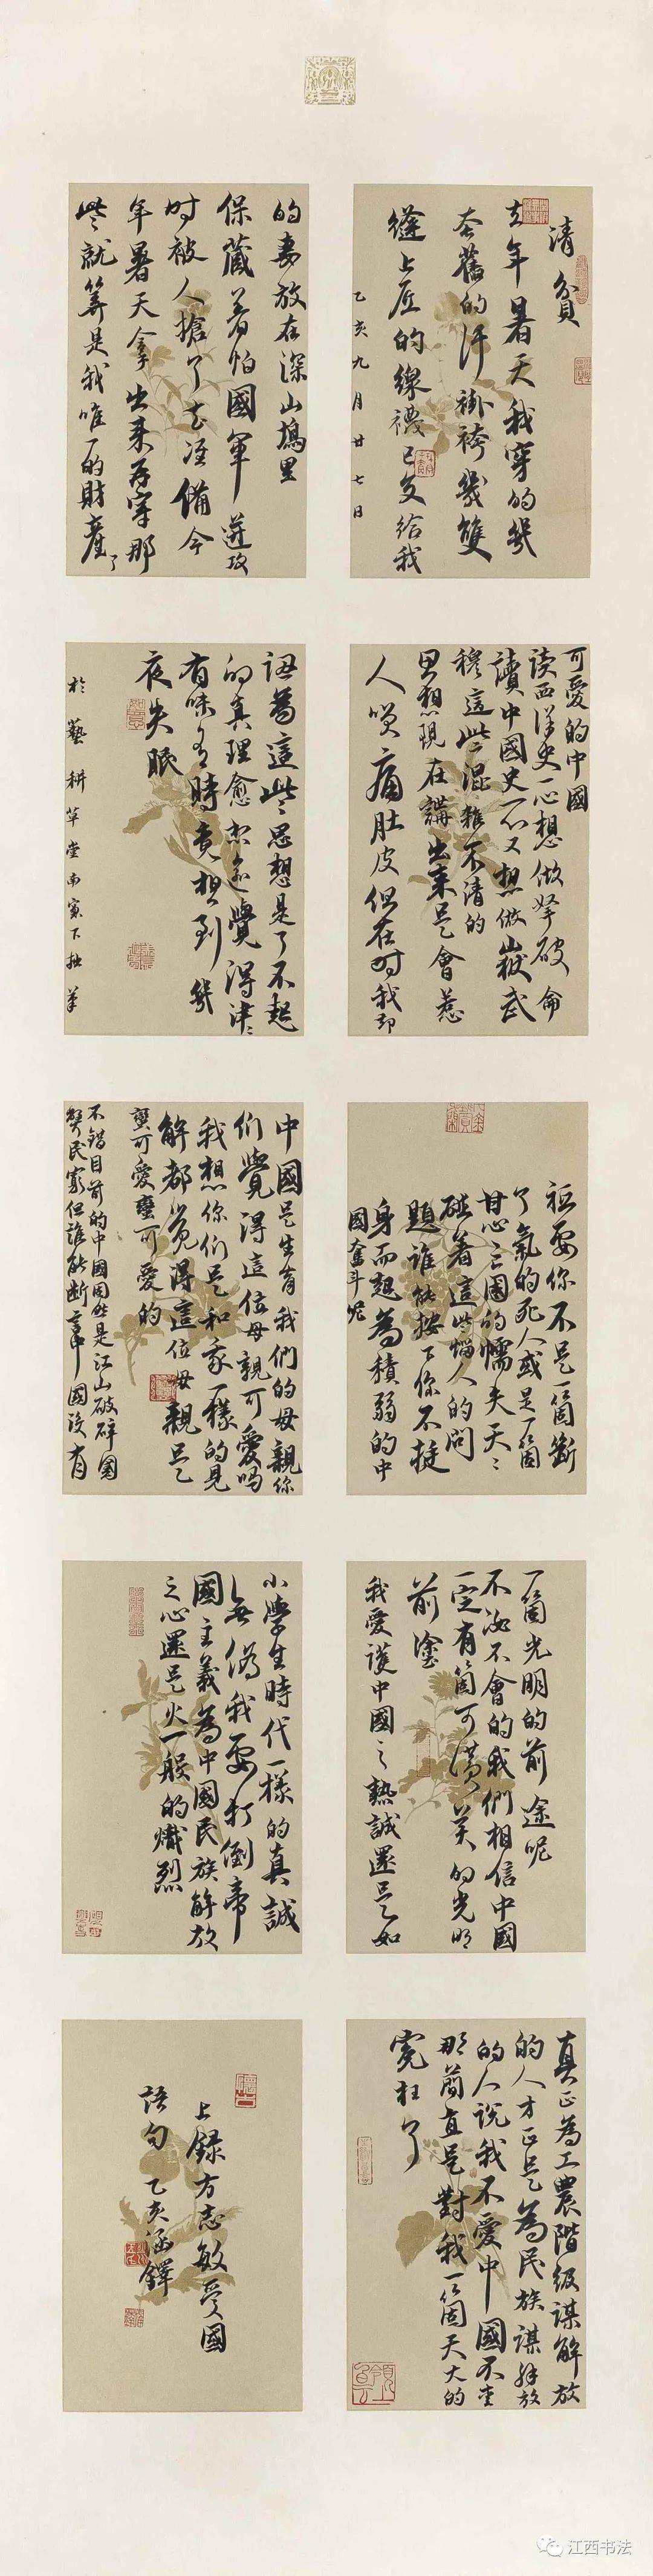 清貧
去年暑天我穿的幾
套舊的汗褂褲幾雙
縫上底的線襪已交給我
乙亥九月廿七日
的妻放在深山塢里
保藏着怕國軍進攻
时被人搶了去准備今
年暑天拿出來再穿那
些就算是我唯一的財產了
可愛的中國
读西洋史一心想做拏破侖
讀中國史一心又想做嶽武
穆這些混雜不清的
思想現在講出來是會惹
人笑痛肚皮但在时我却
認為這些思想是了不起
的真理愈想愈覺得津々
有味有時竟想到幾
夜失眠
於藝耕草堂南窗下拙筆
祗要你不是一箇斷
了氣的死人或是一箇
甘心亡國的懦夫天々
碰着這些惱人的問
題誰能按下你不挺
身而起為積弱的中
國奮斗呢
中國是生育我們的母親你
們覺得這位母親可愛嗎
我想你們是和我一樣的見
解都覺得這位母親是
蠻可愛蠻可愛的
不錯目前的中國固然是江山破碎國
獘民窮但誰能斷言中國沒有
一箇光明的前途呢
不汝不會的我們相信中國
一定有箇可讚美的光明
前塗
我愛護中國之熱誠還是如
小學生時代一樣的真誠
無偽我要打倒帝
國主義為中國民族解放
之心還是火一般的熾烈
真正為工農階級謀解放
的人才正是為民族謀解放
的人說我不愛中國不是
那簡直是對我一箇天大的
冤枉了
上錄方志敏愛國
語句乙亥涵鐸
江西书法